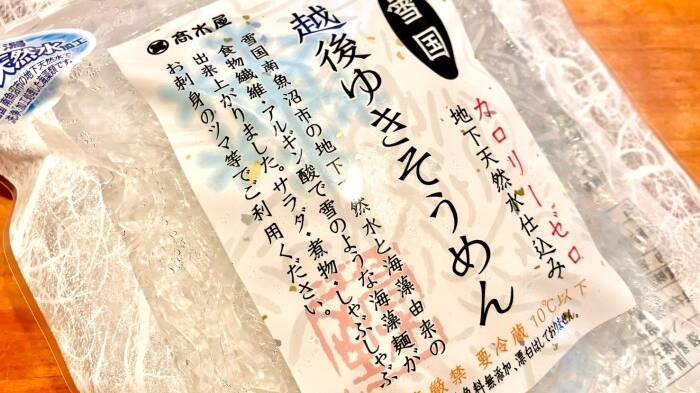 髙木屋
雪国
カロリーゼロ
地下天然水仕込み
越後ゆきそうめん
雪国南魚沼市の地下天然水と海藻由来の
食物繊維・アルギン酸で雪のような海藻麺が
出来上がりました。サラダ・煮物・しゃぶしゃぶ
お刺身のツマ等でご利用ください。
厳禁 要冷蔵10℃以下
料無添加、漂白はしておりません。